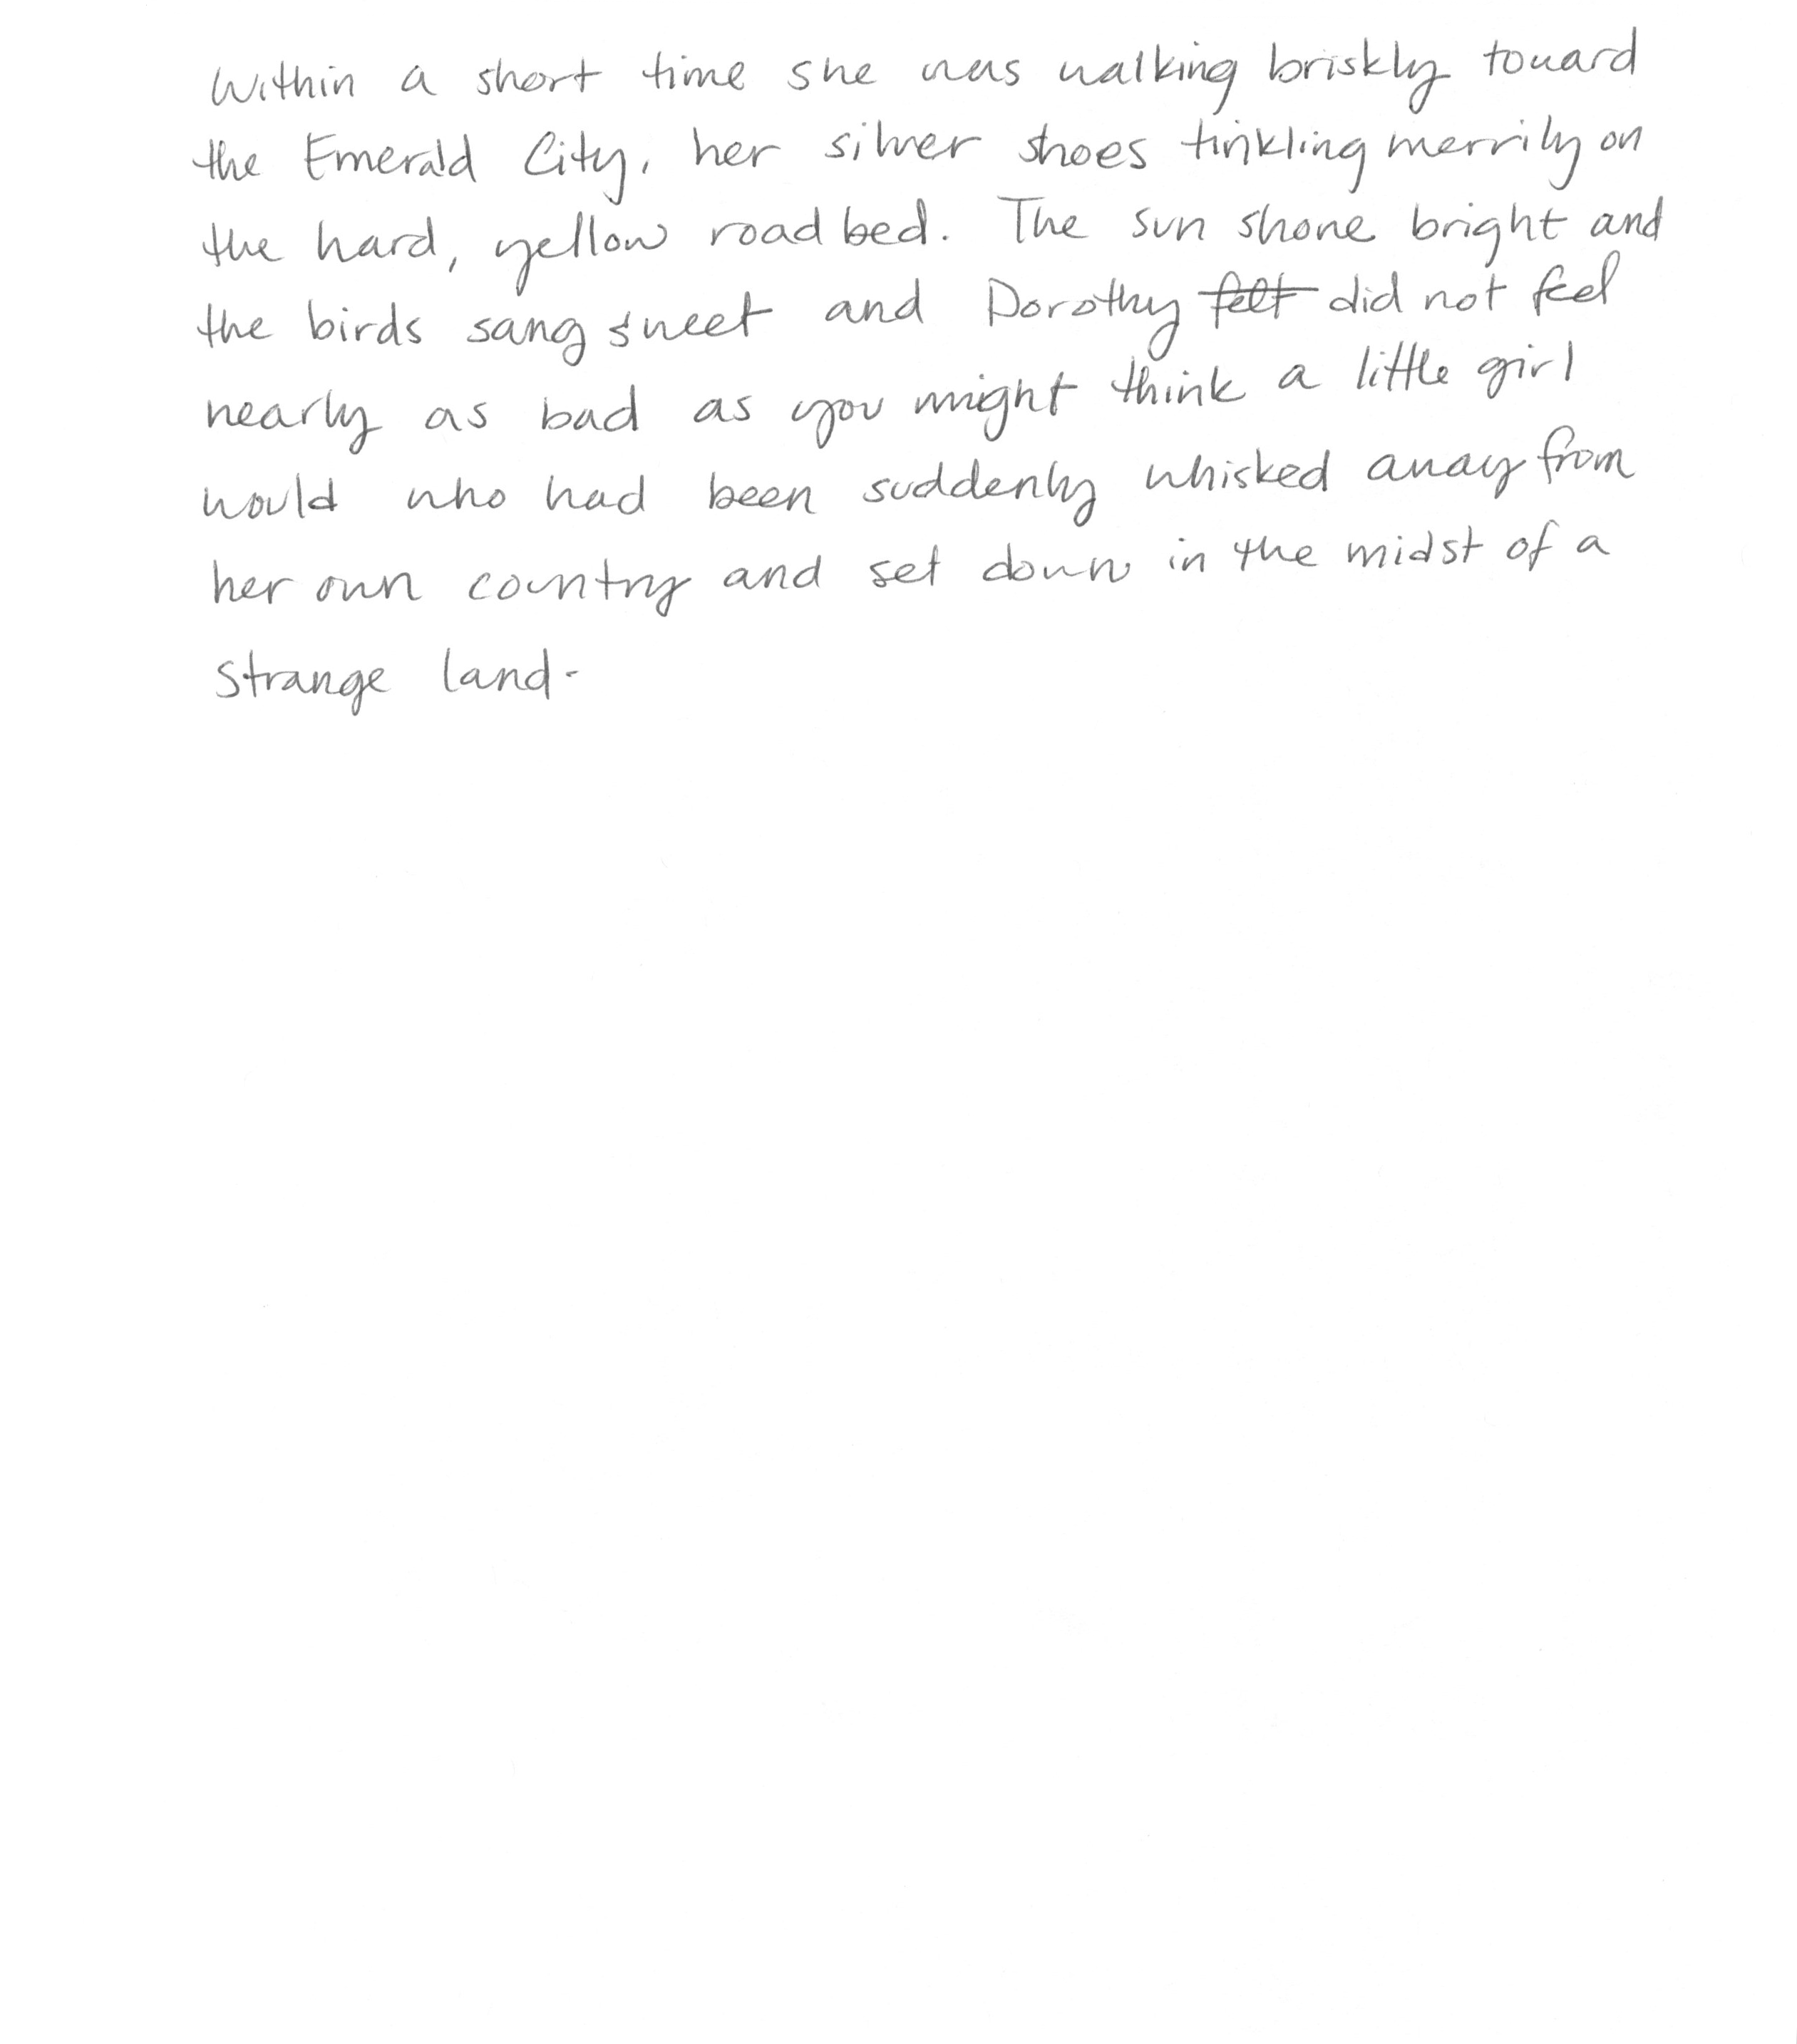 Within a short time she was walking briskly toward
the Emerald City, her silver shoes tinkling merrily on
the hard, yellow road bed. The sun shone bright and
the birds sang sweet and Dorothy felt did not feel
nearly as bad as you might think a little girl
would who had been suddenly whisked away from
her own country and set down in the midst of a
strange land.